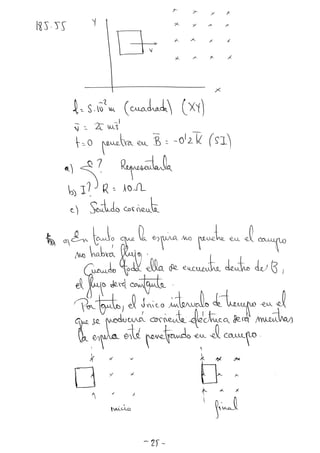 185.55
Y
v
x
l = 5·10⁻² m (cuadrada) (XY)
v̄ = 2 ī ms⁻¹
t=0 penetra en B̄ = -0'2 k̄ (SI)
a) ε? Representarla
b) I? R = 10 Ω
c) Sentido corriente
a) En tanto que la espira no penetre en el campo
no habrá flujo.
Cuando toda ella se encuentre dentro de B̄,
el flujo será constante.
Por tanto, el único intervalo de tiempo en el
que se producirá corriente eléctrica será mientras
la espira esté penetrando en el campo.
inicio
final
- 25 -